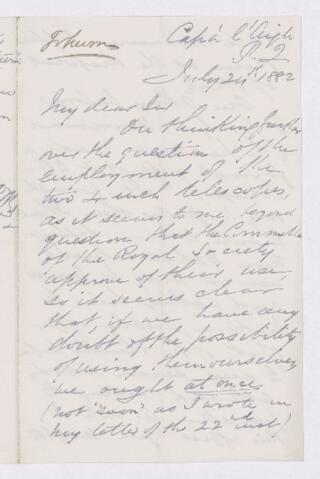 Cap'n l'Aigle
P. Q
July 24th 1882
My dear Sir
On thinking further
over the question of the
employment of the
two 4 inch telescopes,
as it seems to me beyond
question that the Committee
of the Royal Society
approve of their use,
so it seems clear
that, if we have any
doubt of the possibility
of using them ourselves,
we ought at once
(not "soon" as I wrote in
my letter of the 22nd inst)